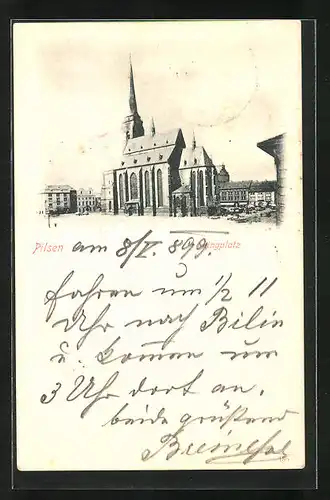 Pilsen am 8/I. 899. Ringplatz
fahren um 1/2 11
Uhr nach Bilin
u. kommen um
3 Uhr dort an.
beide grüßend